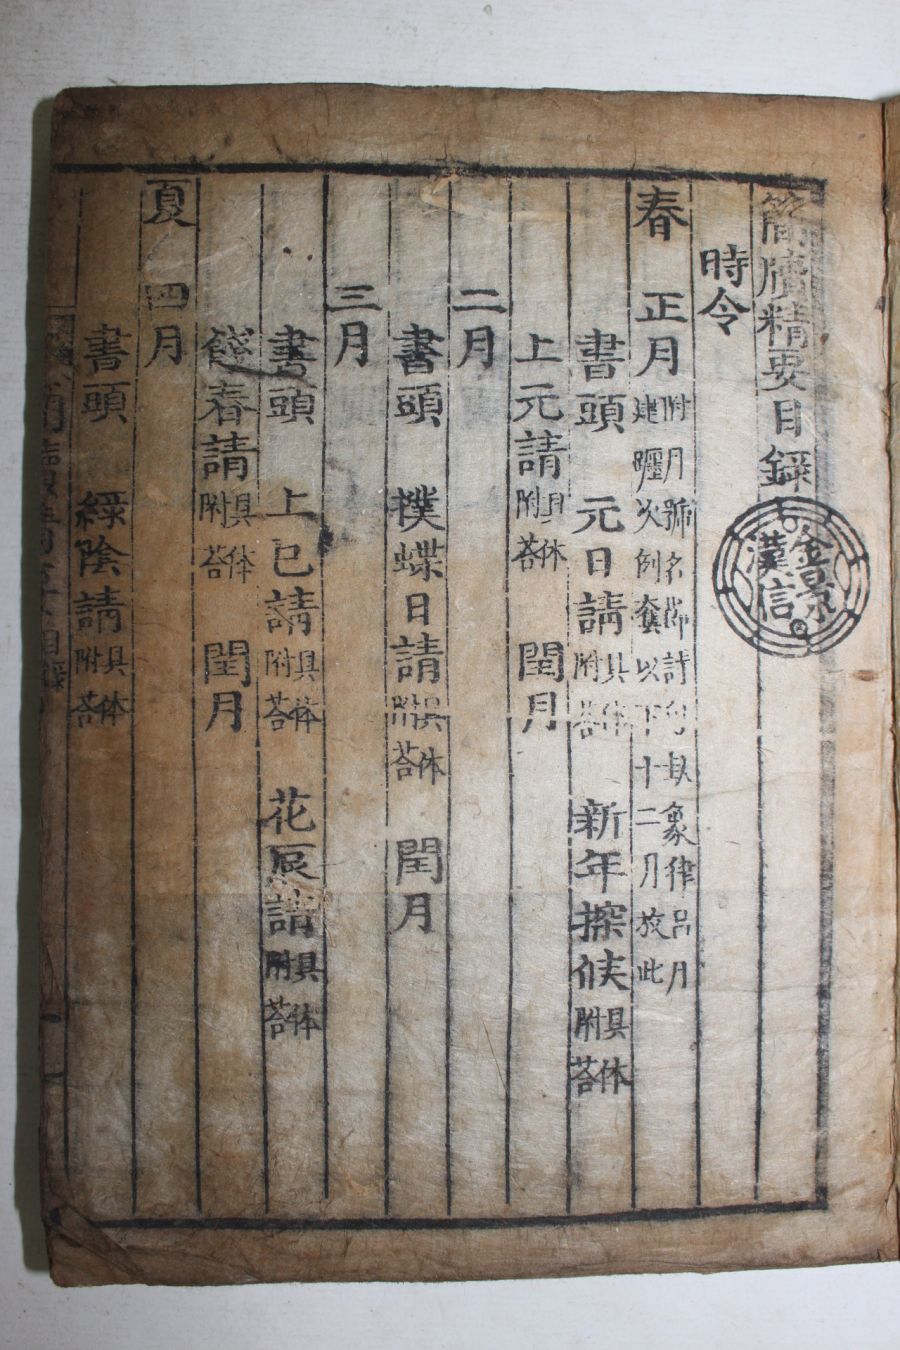 簡牘精要目錄
金景漢信
時令
春　正月 附月號名節討句卦象律呂月建躔次例套以下十二月放此
書頭　元日請 附具答体　新年探候 附具答体
上元請 附具答体　閏月
二月
書頭　撲蝶日請 附具答体　閏月
三月
書頭　上巳請 附具答体　花辰請 附具答体
餞春請 附具答体　閏月
夏　四月
書頭　綠陰請 附具答体